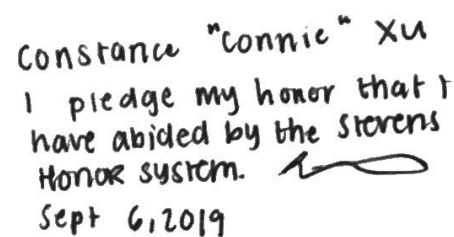 Constance "Connie" Xu
I pledge my honor that I
have abided by the Stevens
Honor System.
Sept 6, 2019